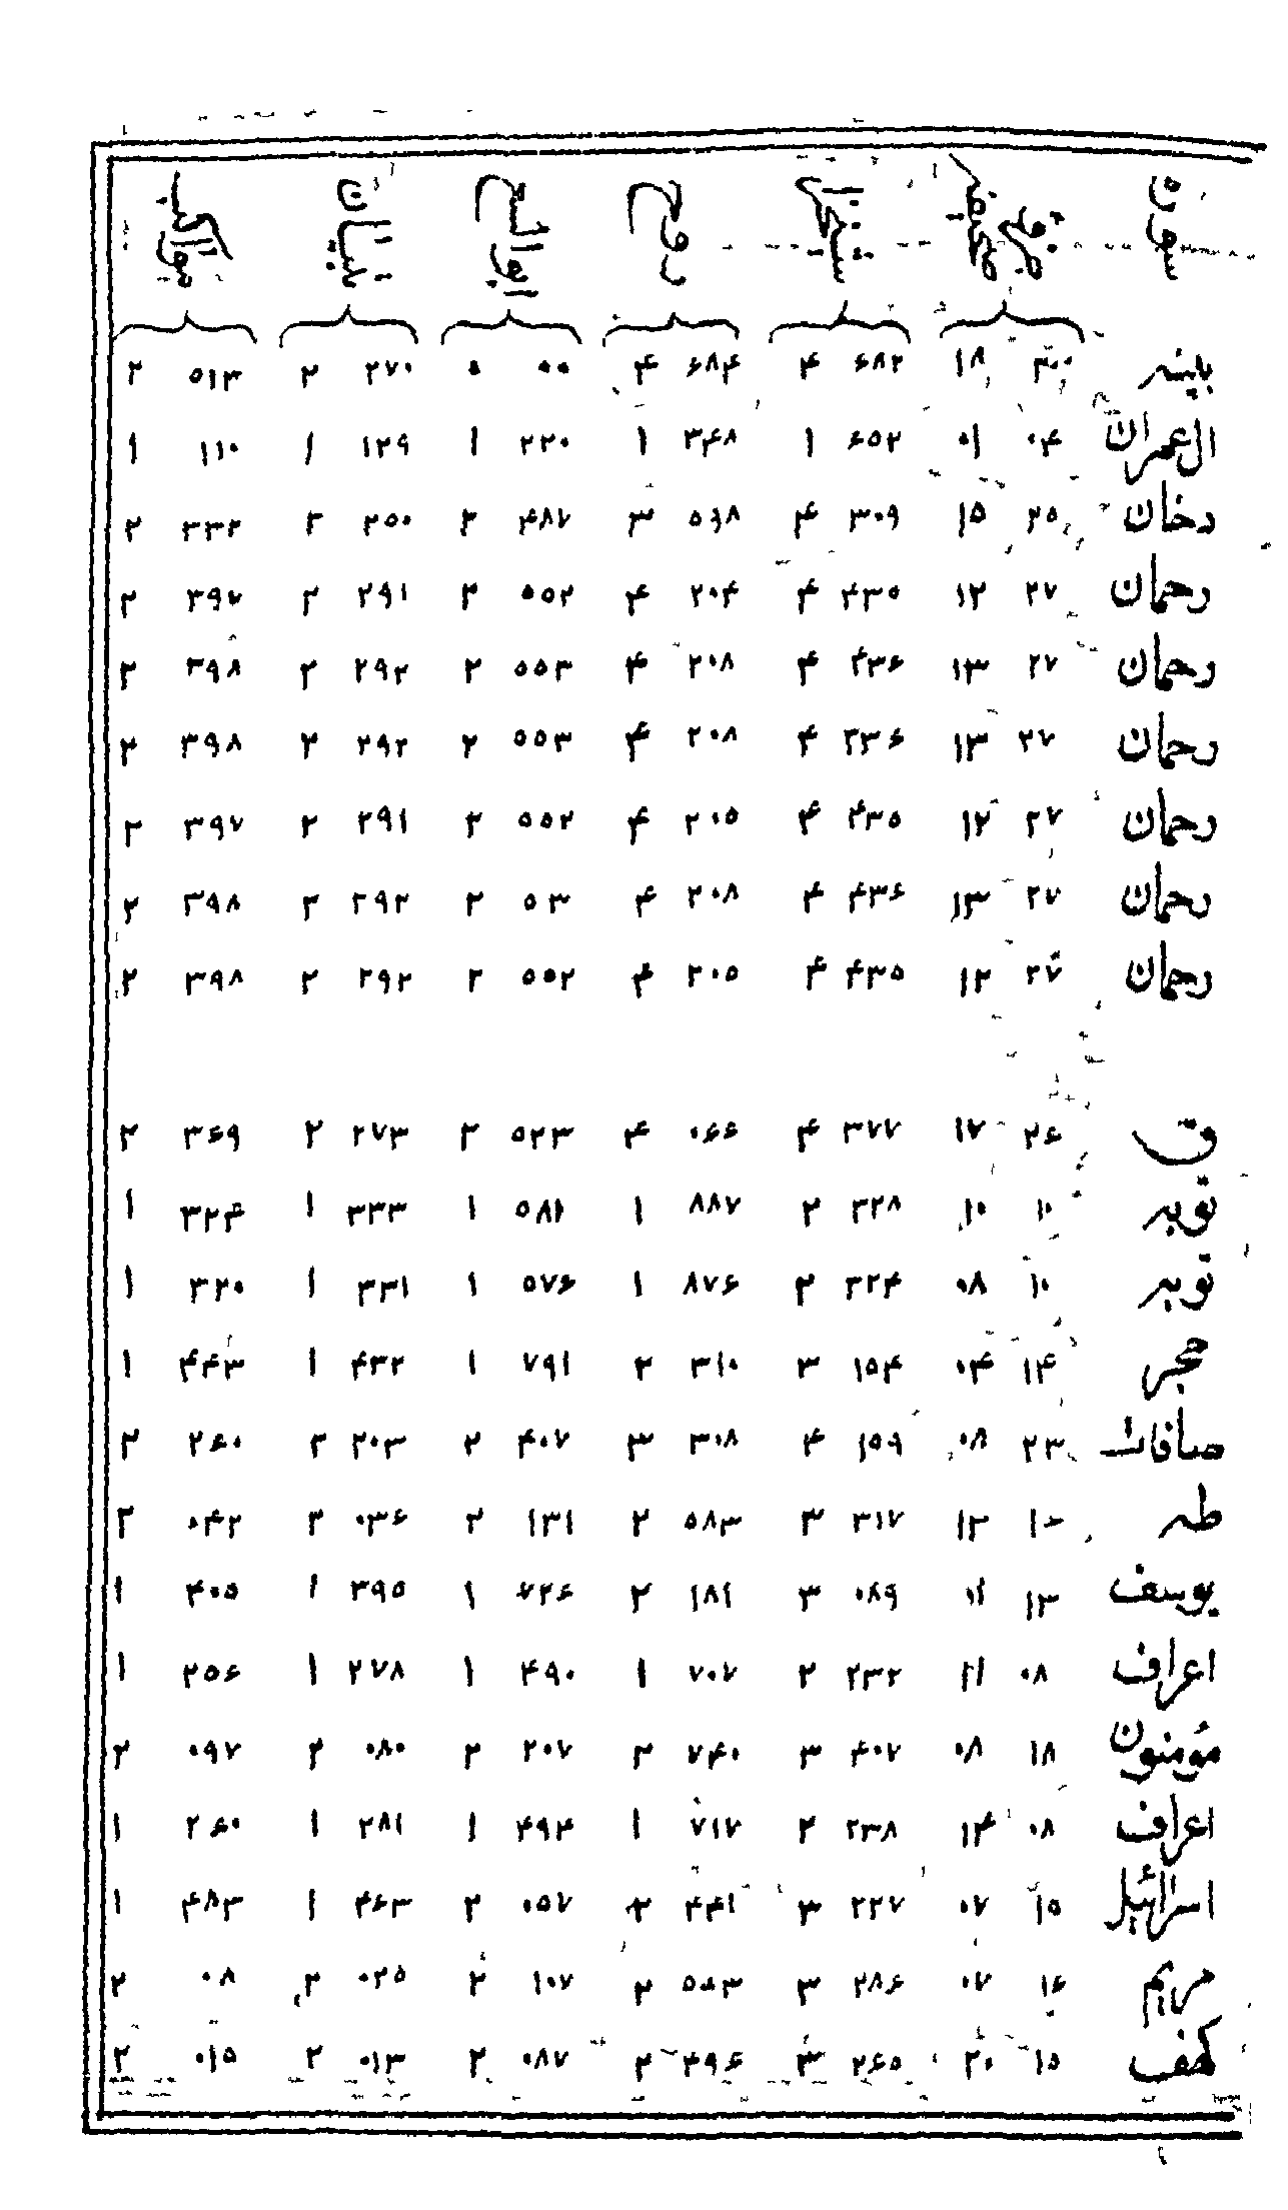 بینه ۳۰ ۱۸ ۶۸۲ ۴ ۶۸۴ ۴ ۰۰ ۰ ۲۷۰ ۲ ۵۱۳ ۲
ال عمران ۰۴ ۰۱ ۶۵۲ ۱ ۳۴۸ ۱ ۲۲۰ ۱ ۱۲۹ ۱ ۱۱۰ ۱
دخان ۲۵ ۱۵ ۳۰۹ ۴ ۵۹۸ ۳ ۴۸۷ ۲ ۲۵۰ ۲ ۳۳۲ ۲
رحمان ۲۷ ۱۲ ۴۳۵ ۴ ۲۰۴ ۴ ۵۵۲ ۲ ۲۹۱ ۲ ۳۹۷ ۲
رحمان ۲۷ ۱۳ ۴۳۶ ۴ ۲۰۸ ۴ ۵۵۳ ۲ ۲۹۲ ۲ ۳۹۸ ۲
رحمان ۲۷ ۱۳ ۴۳۶ ۴ ۲۰۸ ۴ ۵۵۳ ۲ ۲۹۲ ۲ ۳۹۸ ۲
رحمان ۲۷ ۱۲ ۴۳۵ ۴ ۲۰۵ ۴ ۵۵۲ ۲ ۲۹۱ ۲ ۳۹۷ ۲
رحمان ۲۷ ۱۳ ۴۳۶ ۴ ۲۰۸ ۴ ۵۳ ۲ ۲۹۲ ۲ ۳۹۸ ۲
رحمان ۲۷ ۱۲ ۴۳۵ ۴ ۲۰۵ ۴ ۵۵۲ ۲ ۲۹۲ ۲ ۳۹۸ ۲
ق ۲۶ ۱۷ ۳۷۷ ۴ ۰۶۶ ۴ ۵۲۳ ۲ ۲۷۳ ۲ ۳۶۹ ۲
توبه ۱۰ ۱۰ ۳۲۸ ۲ ۸۸۷ ۱ ۵۸۱ ۱ ۳۳۳ ۱ ۳۲۴ ۱
توبه ۱۰ ۰۸ ۳۲۴ ۲ ۸۷۶ ۱ ۵۷۶ ۱ ۳۳۱ ۱ ۳۲۰ ۱
حجر ۱۴ ۰۴ ۱۵۴ ۳ ۳۱۰ ۲ ۷۹۱ ۱ ۴۳۲ ۱ ۴۴۳ ۱
صافات ۲۳ ۰۸ ۱۵۹ ۴ ۳۰۸ ۳ ۴۰۷ ۲ ۲۰۳ ۲ ۲۶۰ ۲
طه ۱۳ ۳۱۷ ۳ ۵۸۳ ۲ ۱۳۱ ۲ ۰۳۶ ۲ ۰۴۲ ۲
یوسف ۱۳ ۱۱ ۰۸۹ ۳ ۱۸۱ ۲ ۷۲۶ ۱ ۳۹۵ ۱ ۴۰۵ ۱
اعراف ۰۸ ۱۱ ۲۳۲ ۲ ۷۰۷ ۱ ۴۹۰ ۱ ۲۷۸ ۱ ۲۵۶ ۱
مؤمنون ۱۸ ۰۸ ۴۰۷ ۳ ۷۴۰ ۲ ۲۰۷ ۲ ۰۸۰ ۲ ۰۹۷ ۲
اعراف ۰۸ ۱۴ ۲۳۸ ۲ ۷۱۷ ۱ ۴۹۴ ۱ ۲۸۱ ۱ ۲۶۰ ۱
اسرائیل ۱۵ ۰۷ ۲۲۷ ۳ ۴۴۱ ۲ ۰۵۷ ۲ ۴۶۳ ۱ ۴۸۳ ۱
مریم ۱۶ ۰۷ ۲۸۶ ۳ ۲ ۱۰۷ ۲ ۰۲۵ ۲ ۰۸ ۲
کهف ۱۵ ۲۰ ۲۶۵ ۳ ۴۹۶ ۲ ۰۸۷ ۲ ۰۱۳ ۲ ۰۱۵ ۲